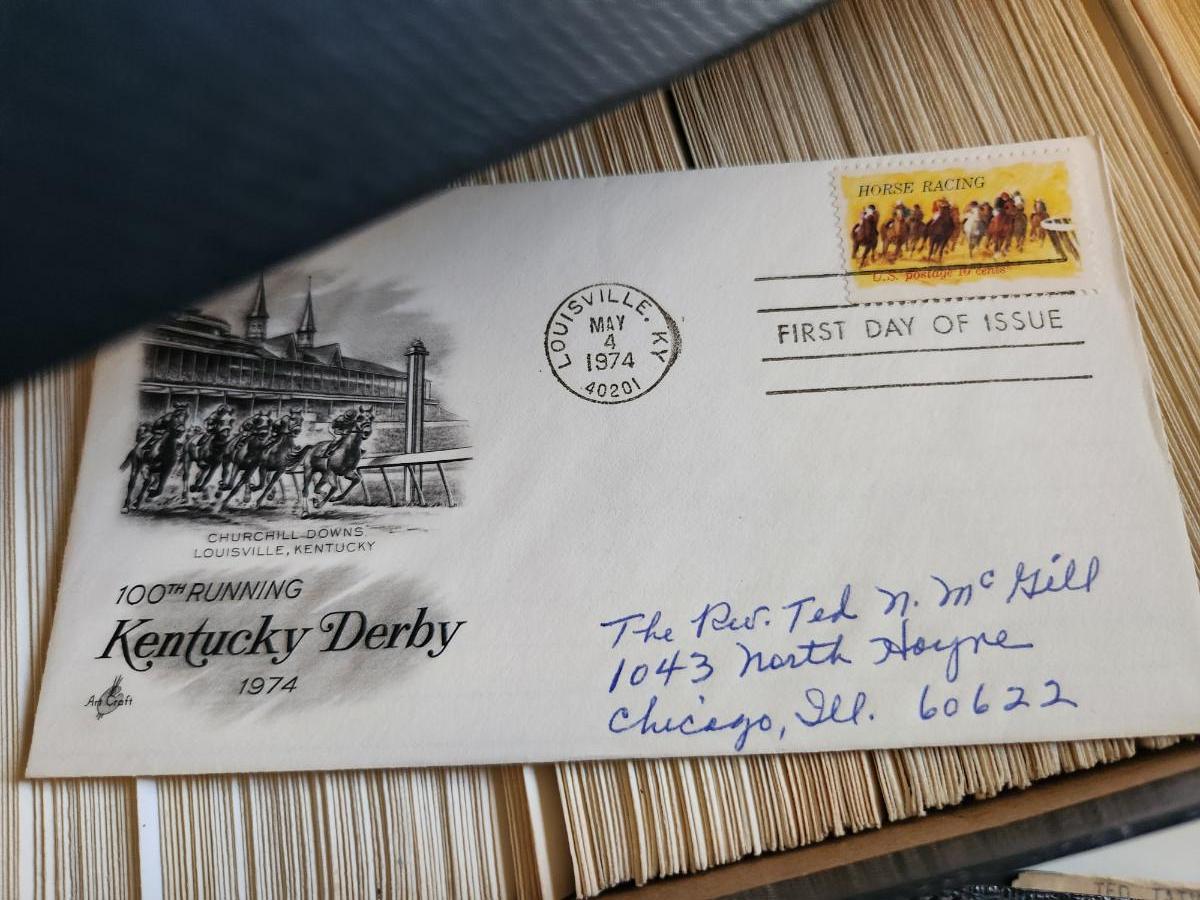 HORSE RACING
U.S. postage 10 cents
LOUISVILLE, KY
MAY
4
1974
40201
FIRST DAY OF ISSUE
CHURCHILL DOWNS
LOUISVILLE, KENTUCKY
100TH RUNNING
Kentucky Derby
1974
Art Craft
The Rev. Ted N. McGill
1043 North Hoyne
Chicago, Ill. 60622
TED